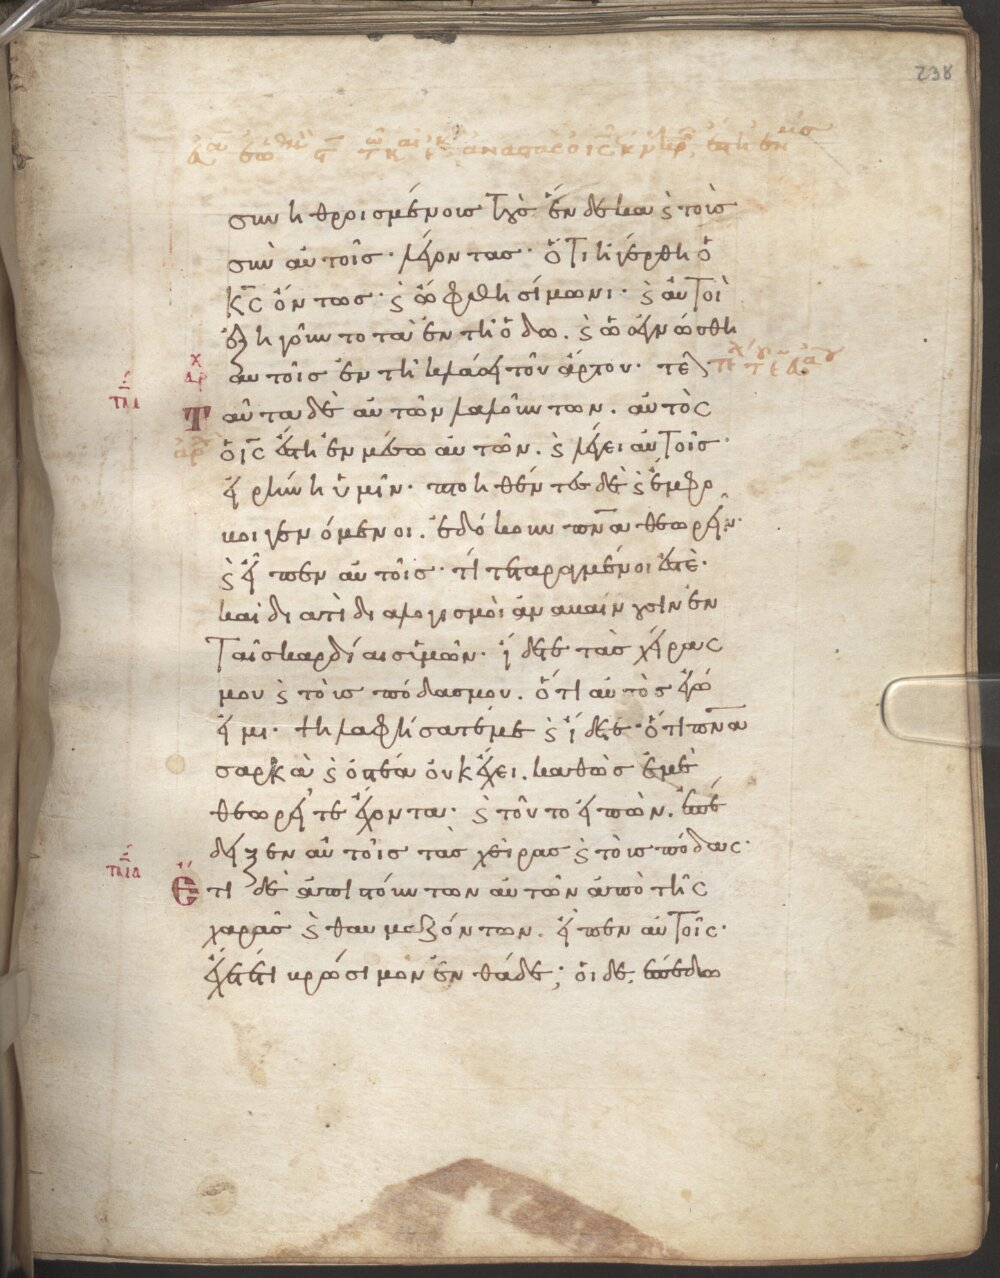 238
συνηθροισμένοισ τοὺσ ἕνδεκα ϗ τοὺσ
σὺν αὐτοῖσ· λέγοντασ· ὅτι ἠγέρθη ὁ
κ̅ς̅ ὄντωσ· ϗ ὤφθη σίμωνι· ϗ αὐτοὶ
ἐξηγοῦντο τὰ ἐν τῆ ὁδῶ. ϗ ὡσ ἐγνώσθη
αὐτοῖσ ἐν τῆ κλάσει τοῦ ἄρτου· τελ
χ
αρ
τλθ
Ταῦτα δὲ αὐτῶν λαλούντων. αὐτὸς
ὁ ι̅ς̅ ἔστη ἐν μέσω αὐτῶν. ϗ λέγει αὐτοῖσ·
εἰρήνη ὑμῖν· πτοηθέντεσ δὲ ϗ ἔμφο
βοι γενόμενοι. ἐδόκουν π̅ν̅α̅ θεωρεῖν·
ϗ εἶπεν αὐτοῖσ· τί τεταραγμένοι ἐστὲ·
καὶ διατὶ διαλογισμοὶ ἀναβαίνουσιν ἐν
ταῖσ καρδίαισ ὑμῶν· ἴδετε τὰσ χεῖρας
μου ϗ τοὺσ πόδασ μου. ὅτι αὐτὸσ ἐγώ
εἰμι· ψηλαφήσατέ με ϗ ἴδετε· ὅτι π̅ν̅α̅
σάρκα ϗ ὀστέα οὐκ ἔχει. καθὼσ ἐμὲ
θεωρεῖτε ἔχοντα· ϗ τοῦτο εἰπὼν. ἐπέ
δειξεν αὐτοῖσ τὰσ χεῖρασ ϗ τοὺσ πόδας·
Ἔτι δὲ ἀπιστούντων αὐτῶν ἀπὸ τῆς
χαρᾶσ ϗ θαυμαζόντων. εἶπεν αὐτοῖς·
ἔχετέ τι βρώσιμον ἐνθάδε; οἱ δὲ, ἐπέδω